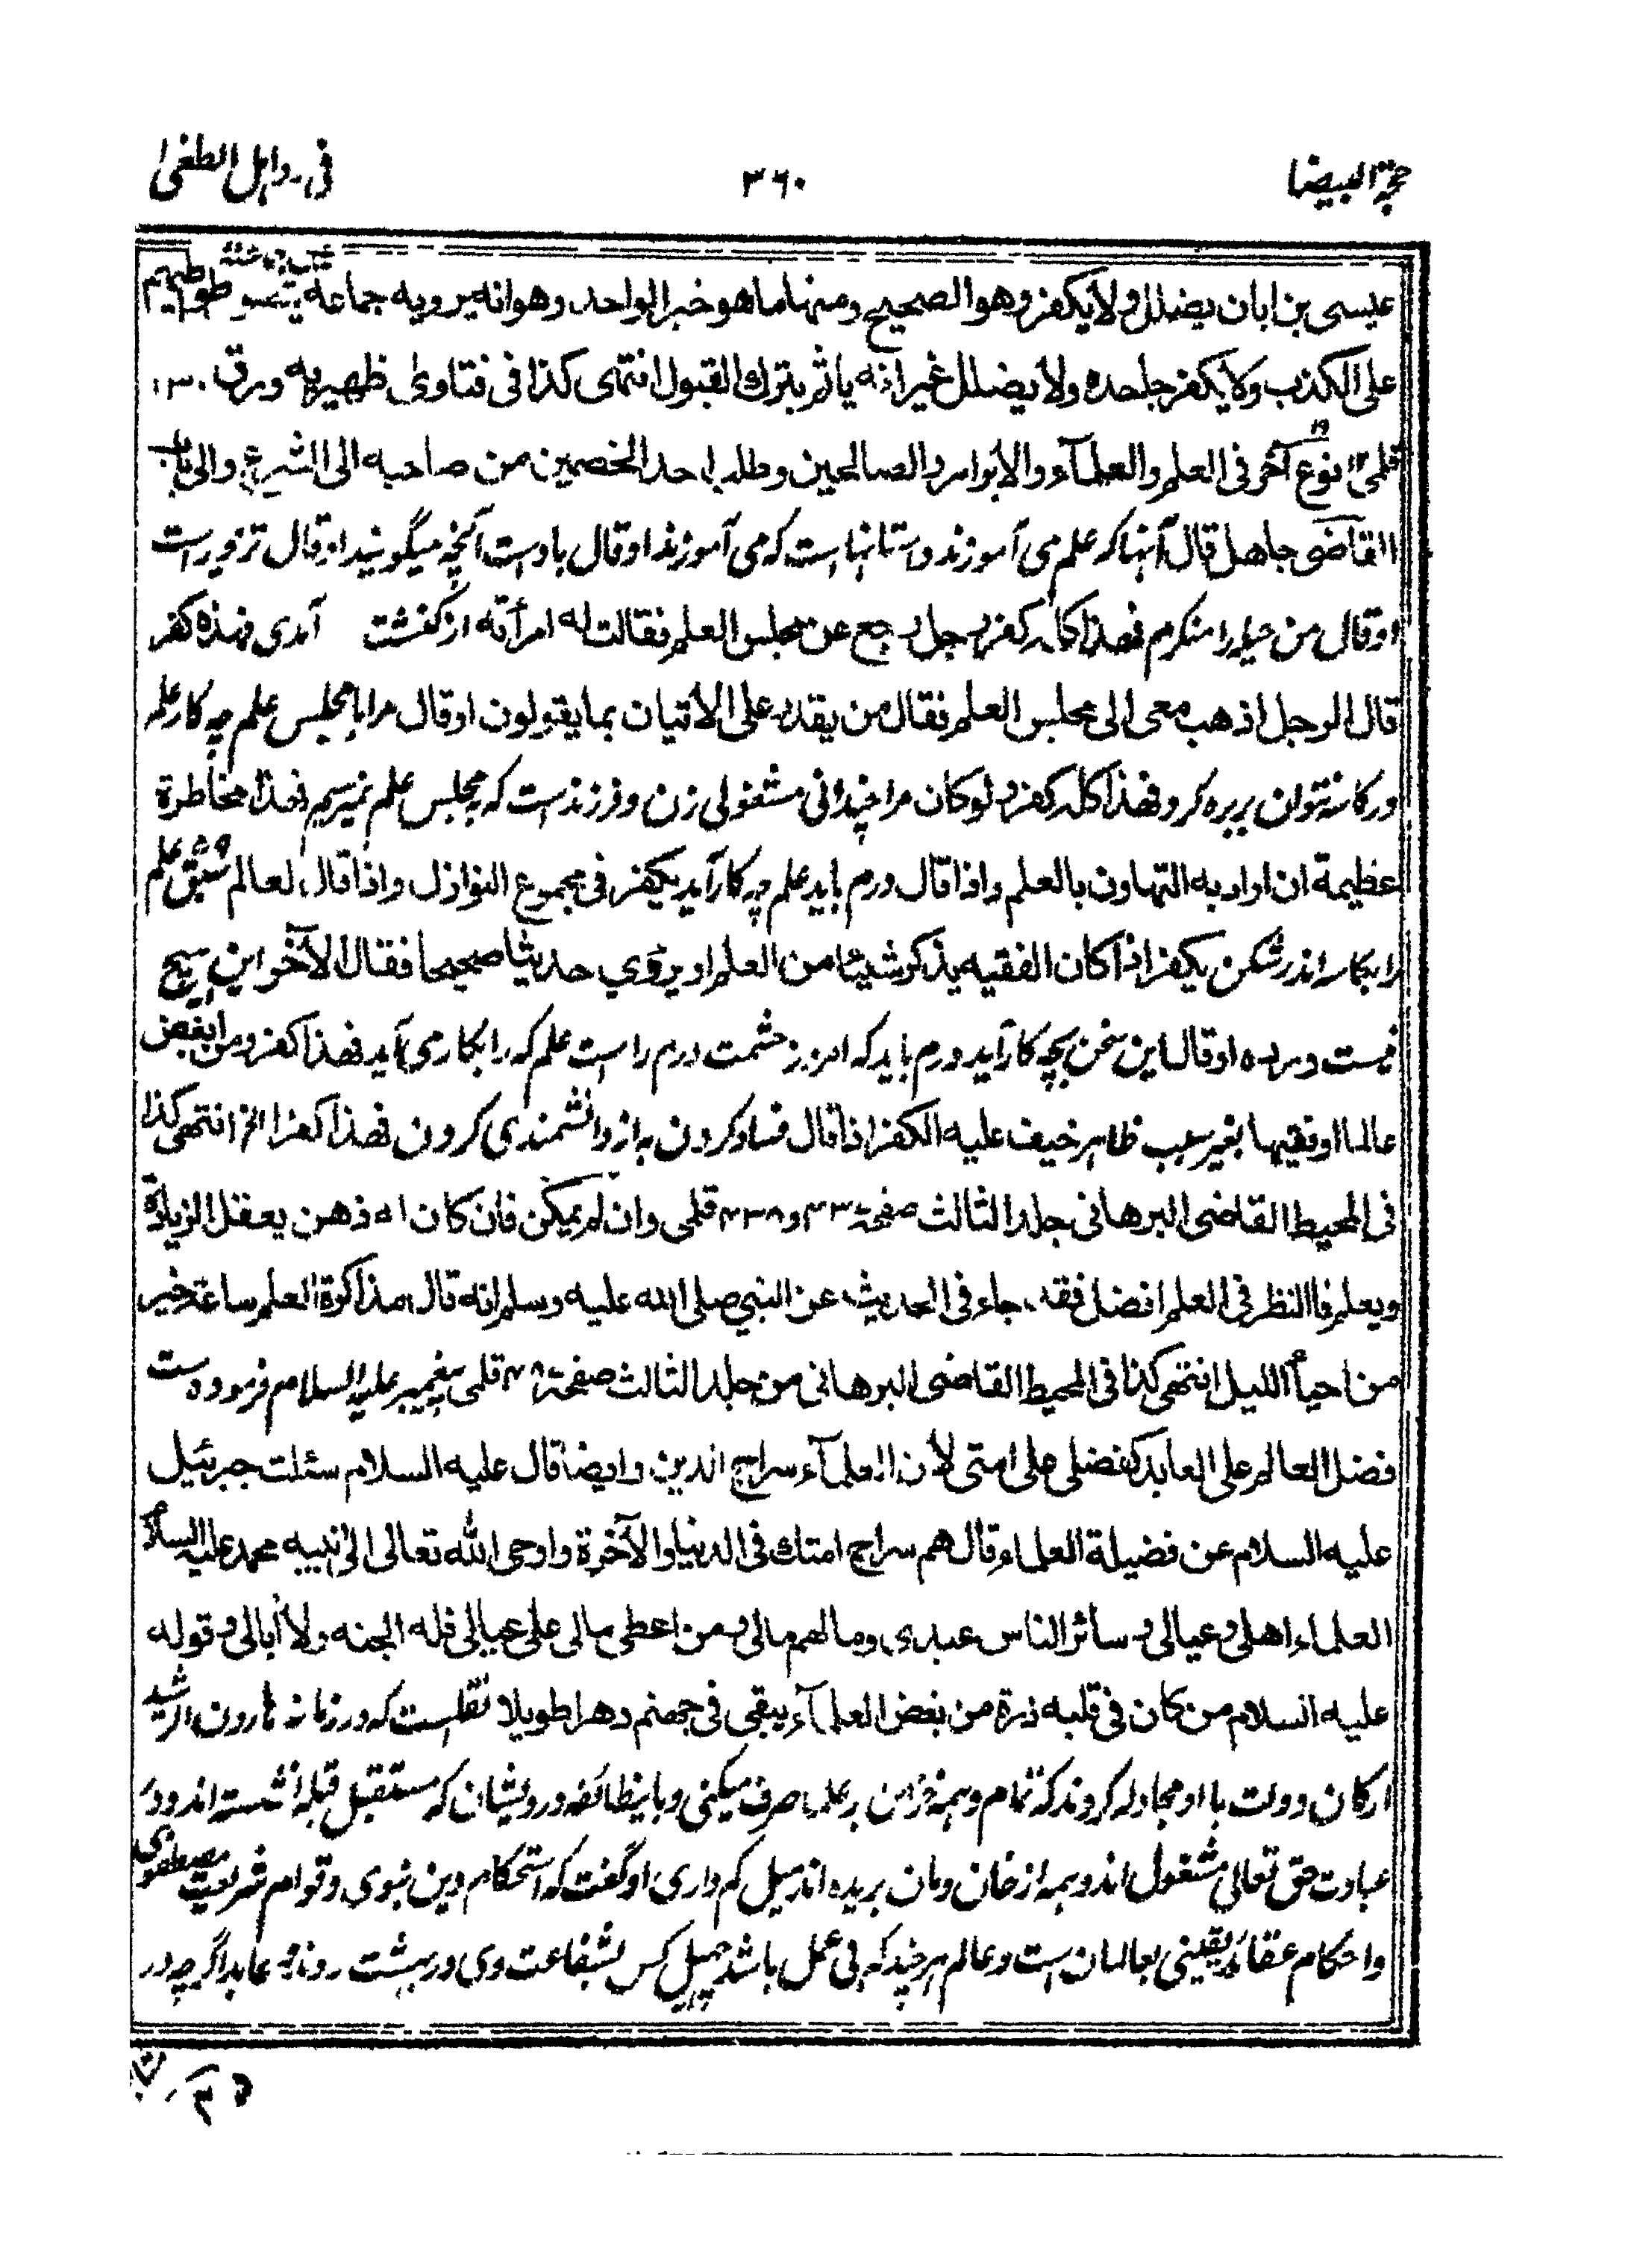 حجة البيضا ٣٦٠ فى رد اہل الطغى
عيسى بن ابان يضلل ولا يكفر وهو الصحيح ومنها ما هو خبر الواحد وهو انه يرويه جماعة
على الكذب ولا يكفر جاحده ولا يضلل غير انه ياثم بترك القبول انتهى كذا فى فتاوى ظهيريه ورق ١٣٠
قلمى نوع آخر فى العلم والعلمآء والابرار والصالحين وطلب احد الخصمين من صاحبه الى الشرع والى باب
القاضى جاهل قال آنہا كہ علم مى آموزند داستانہا است كہ مى آموزند او قال باد است آنچہ ميگويند او قال تزوير است
او قال من حيلہ را منكرم فهذا كلہ كفر رجل رجع عن مجلس العلم فقالت له امرأته از كنشت آمدى فهذه كفر
قال الرجل اذهب معى الى مجلس العلم فقال من يقدر على الأتيان بما يقولون او قال مرا با مجلس علم چہ كار علم
در كاسہ نتوان بريده كرد فهذا كلہ كفر ولو كان مرا چندانى مشغولى زن و فرزند است كہ بہ مجلس علم نميرسيم فهذا مخاطرة
عظيمة ان اراد به التهاون بالعلم واذا قال درم بايد علم چہ كار آيد يكفر فى مجموع النوازل واذا قال لعالم علم
را بكاسہ اندر شكن يكفر اذا كان الفقيه يذكر شيئا من العلم او يروى حديثا صحيحا فقال الآخر اين ہيچ
نيست ورده او قال اين سخن بچہ كار آيد درم بايد كہ امروز حشمت درم راست علم كہ را بكار مى آيد فهذا كفر ومن ابغض
عالما او فقيها بغير سبب ظاہر خيف عليه الكفر اذا قال فساد كردن بہ از دانشمندى كردن فهذا كفر الخ انتهى كذا
فى المحيط القاضى البرهانى جلد الثالث صفحة قلمى وان لم يمكن فان كان له ذهن يعقل الزيادة
ويعلم فالنظر فى العلم افضل فقد جاء فى الحديث عن النبي صلى الله عليه وسلم انه قال مذاكرة العلم ساعة خير
من احيأ الليل انتهى كذا فى المحيط القاضى البرهانى من جلد الثالث صفحة قلمى پيغمبر عليہ السلام فرموده است
فضل العالم على العابد كفضلى على امتى لأن العلمآء سراج الدين وايضا قال عليه السلام سئلت جبرئيل
عليه السلام عن فضيلة العلماء قال هم سراج امتك فى الدنيا والآخرة واوحى الله تعالى الى نبيه محمد عليه السلام
العلماء اهلى وعيالى وسائر الناس عبدى ومالهم مالى ومن اعطى مالى على عيالى فله الجنه ولا أبالى وقوله
عليه السلام من كان فى قلبه ذرة من بغض العلمآء يبقى فى جهنم دهرا طويلا نقلست كہ در زمانہ ہارون الرشيد
اركان دولت با او مجادلہ كردند كہ تمام وہمہ خزاين بر علما صرف ميكنى و باينطائفہ درويشان كہ مستقبل قبلہ نشستہ اند و در
عبادت حق تعالى مشغول اند و ہمہ از خان و مان بريده اند ميل كم دارى او گفت كہ استحكام دين نبوى و قوام شريعت مصطفوى
و احكام عقائد يقينى بعالمان است و عالم ہر چند كہ بى عمل باشد چہل كس بشفاعت وى در بہشت روند و عابد اگرچہ در